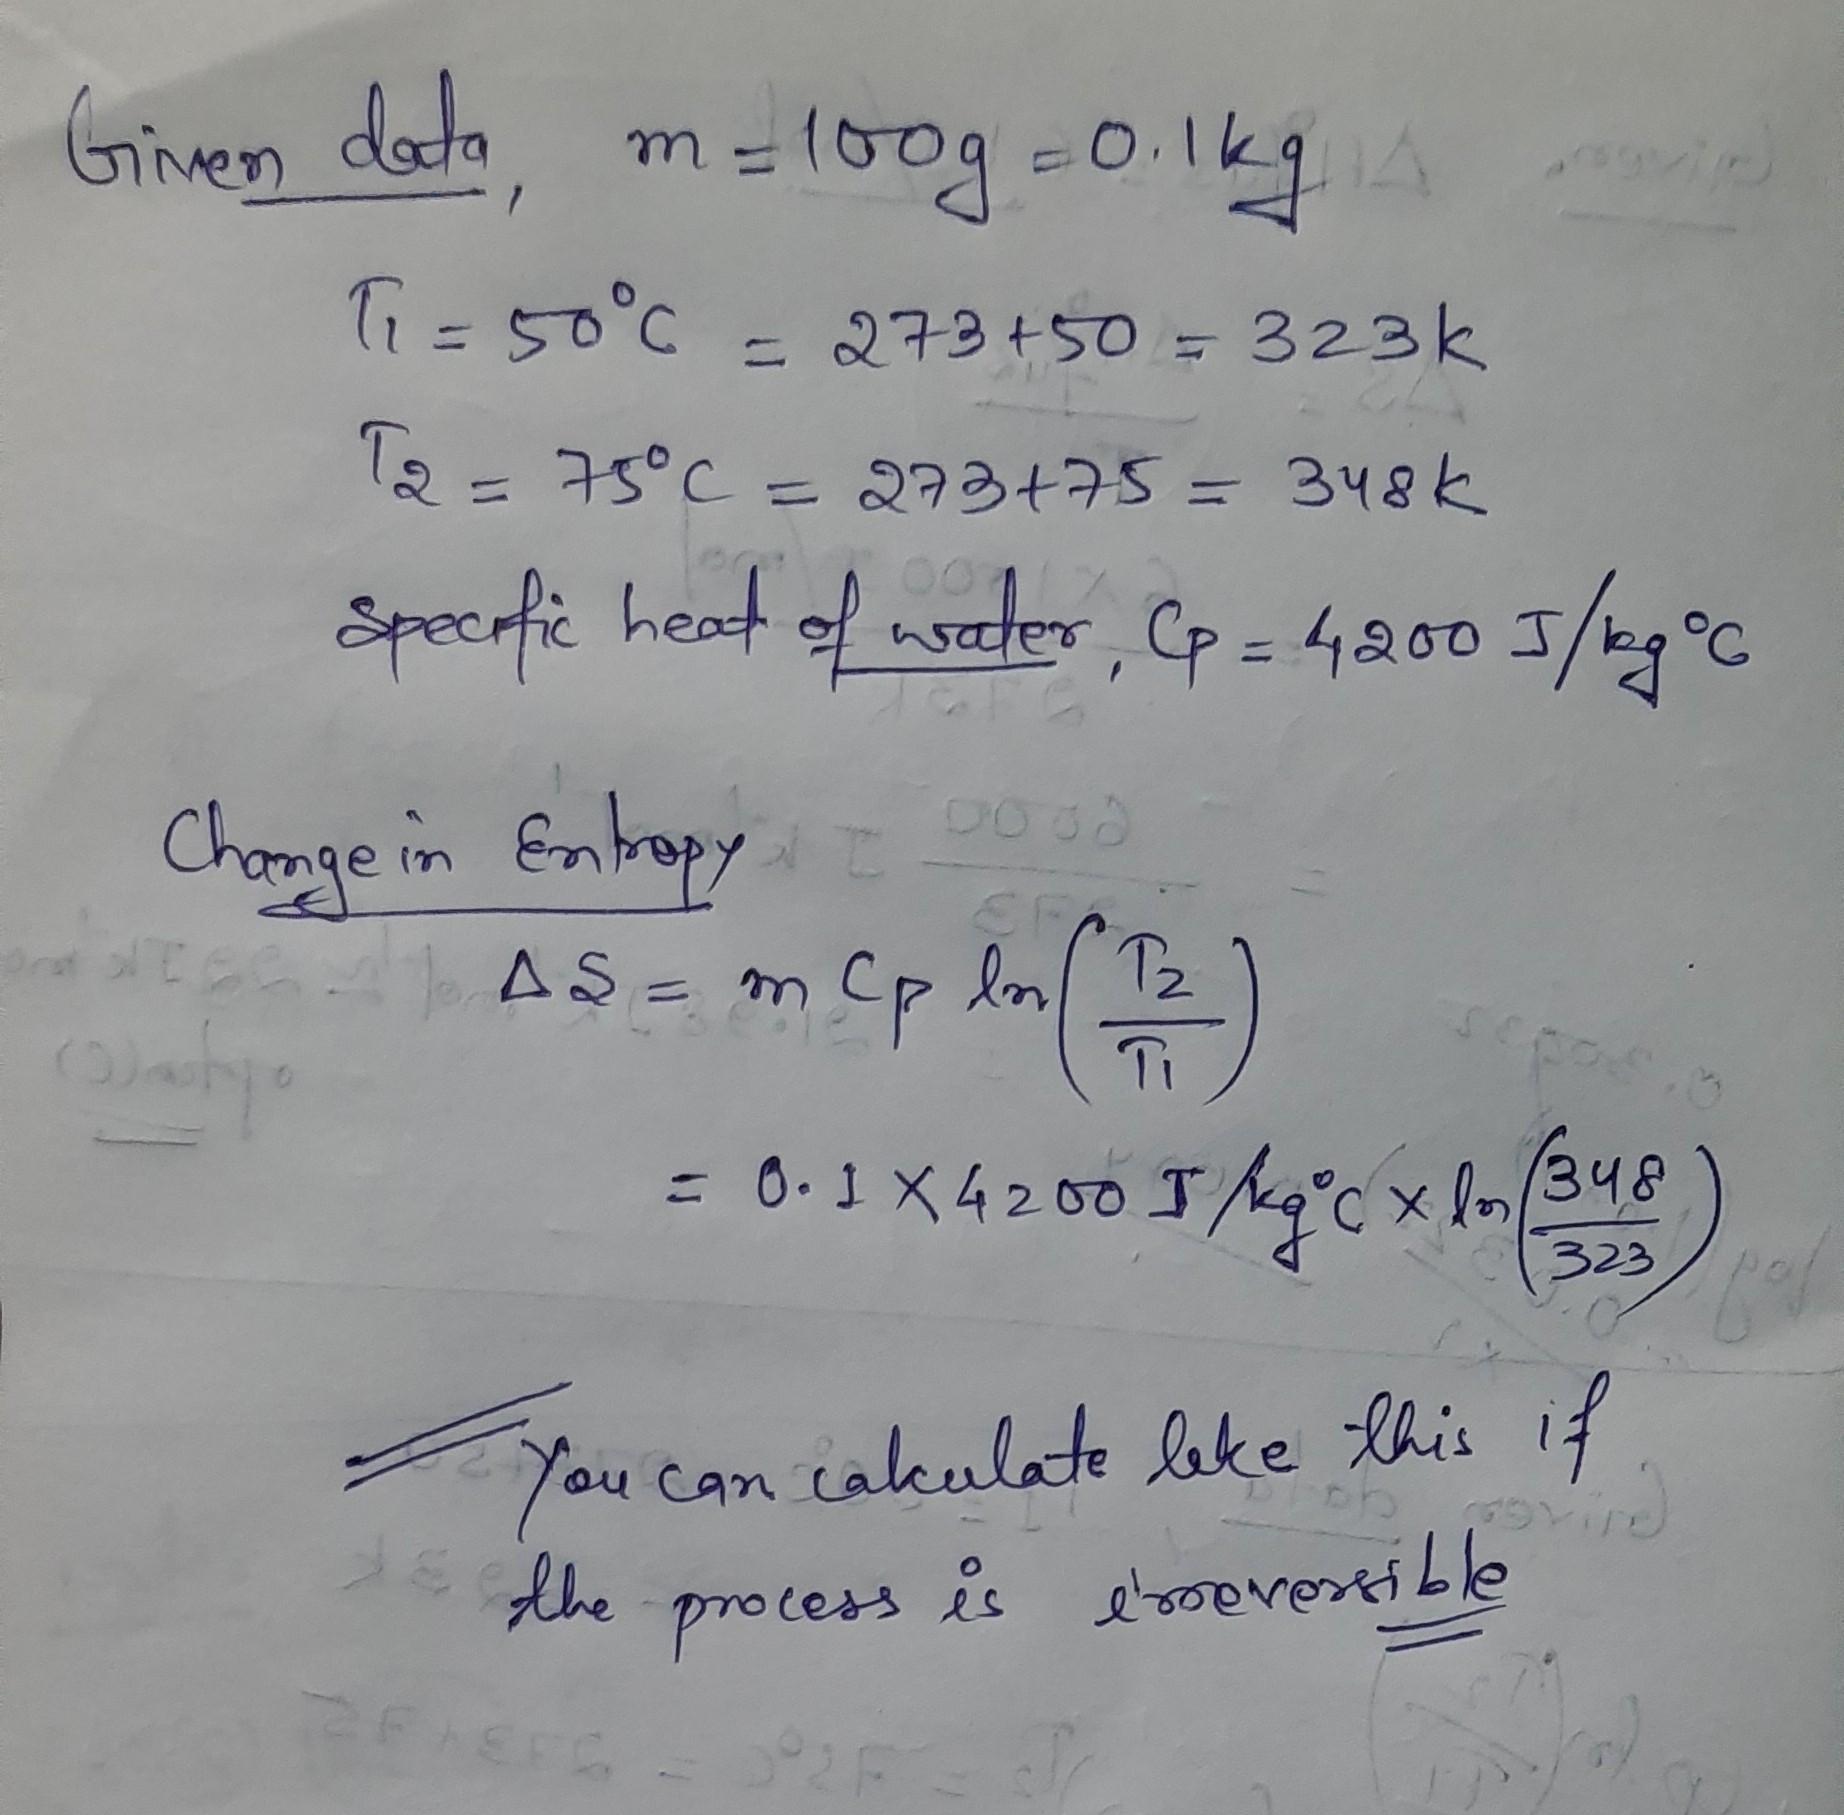 Given data, m = 100g = 0.1kg
T1 = 50°C = 273+50 = 323k
T2 = 75°C = 273+75 = 348k
specific heat of water, Cp = 4200 J/kg°C
Change in Entropy
ΔS = m Cp ln(T2/T1)
= 0.1 X 4200 J/kg°C x ln(348/323)
You can calculate like this if
the process is irreversible